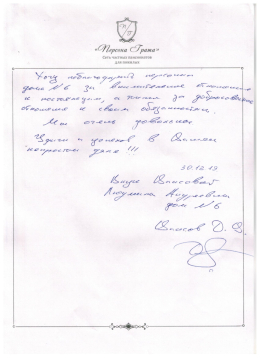 «Погонка Грина»
Сеть частных пансионатов
для пожилых
Хочу поблагодарить персонал
дома №6 за внимательное отношение
к постояльцам, а также за добросовестное
отношение к своим обязанностям.
Мы очень довольны
Удачи и успехов в Вашем
непростом деле !!!
30.12.19
Внуч
Людмила Андреевны
дом №6
Власов Д. В.